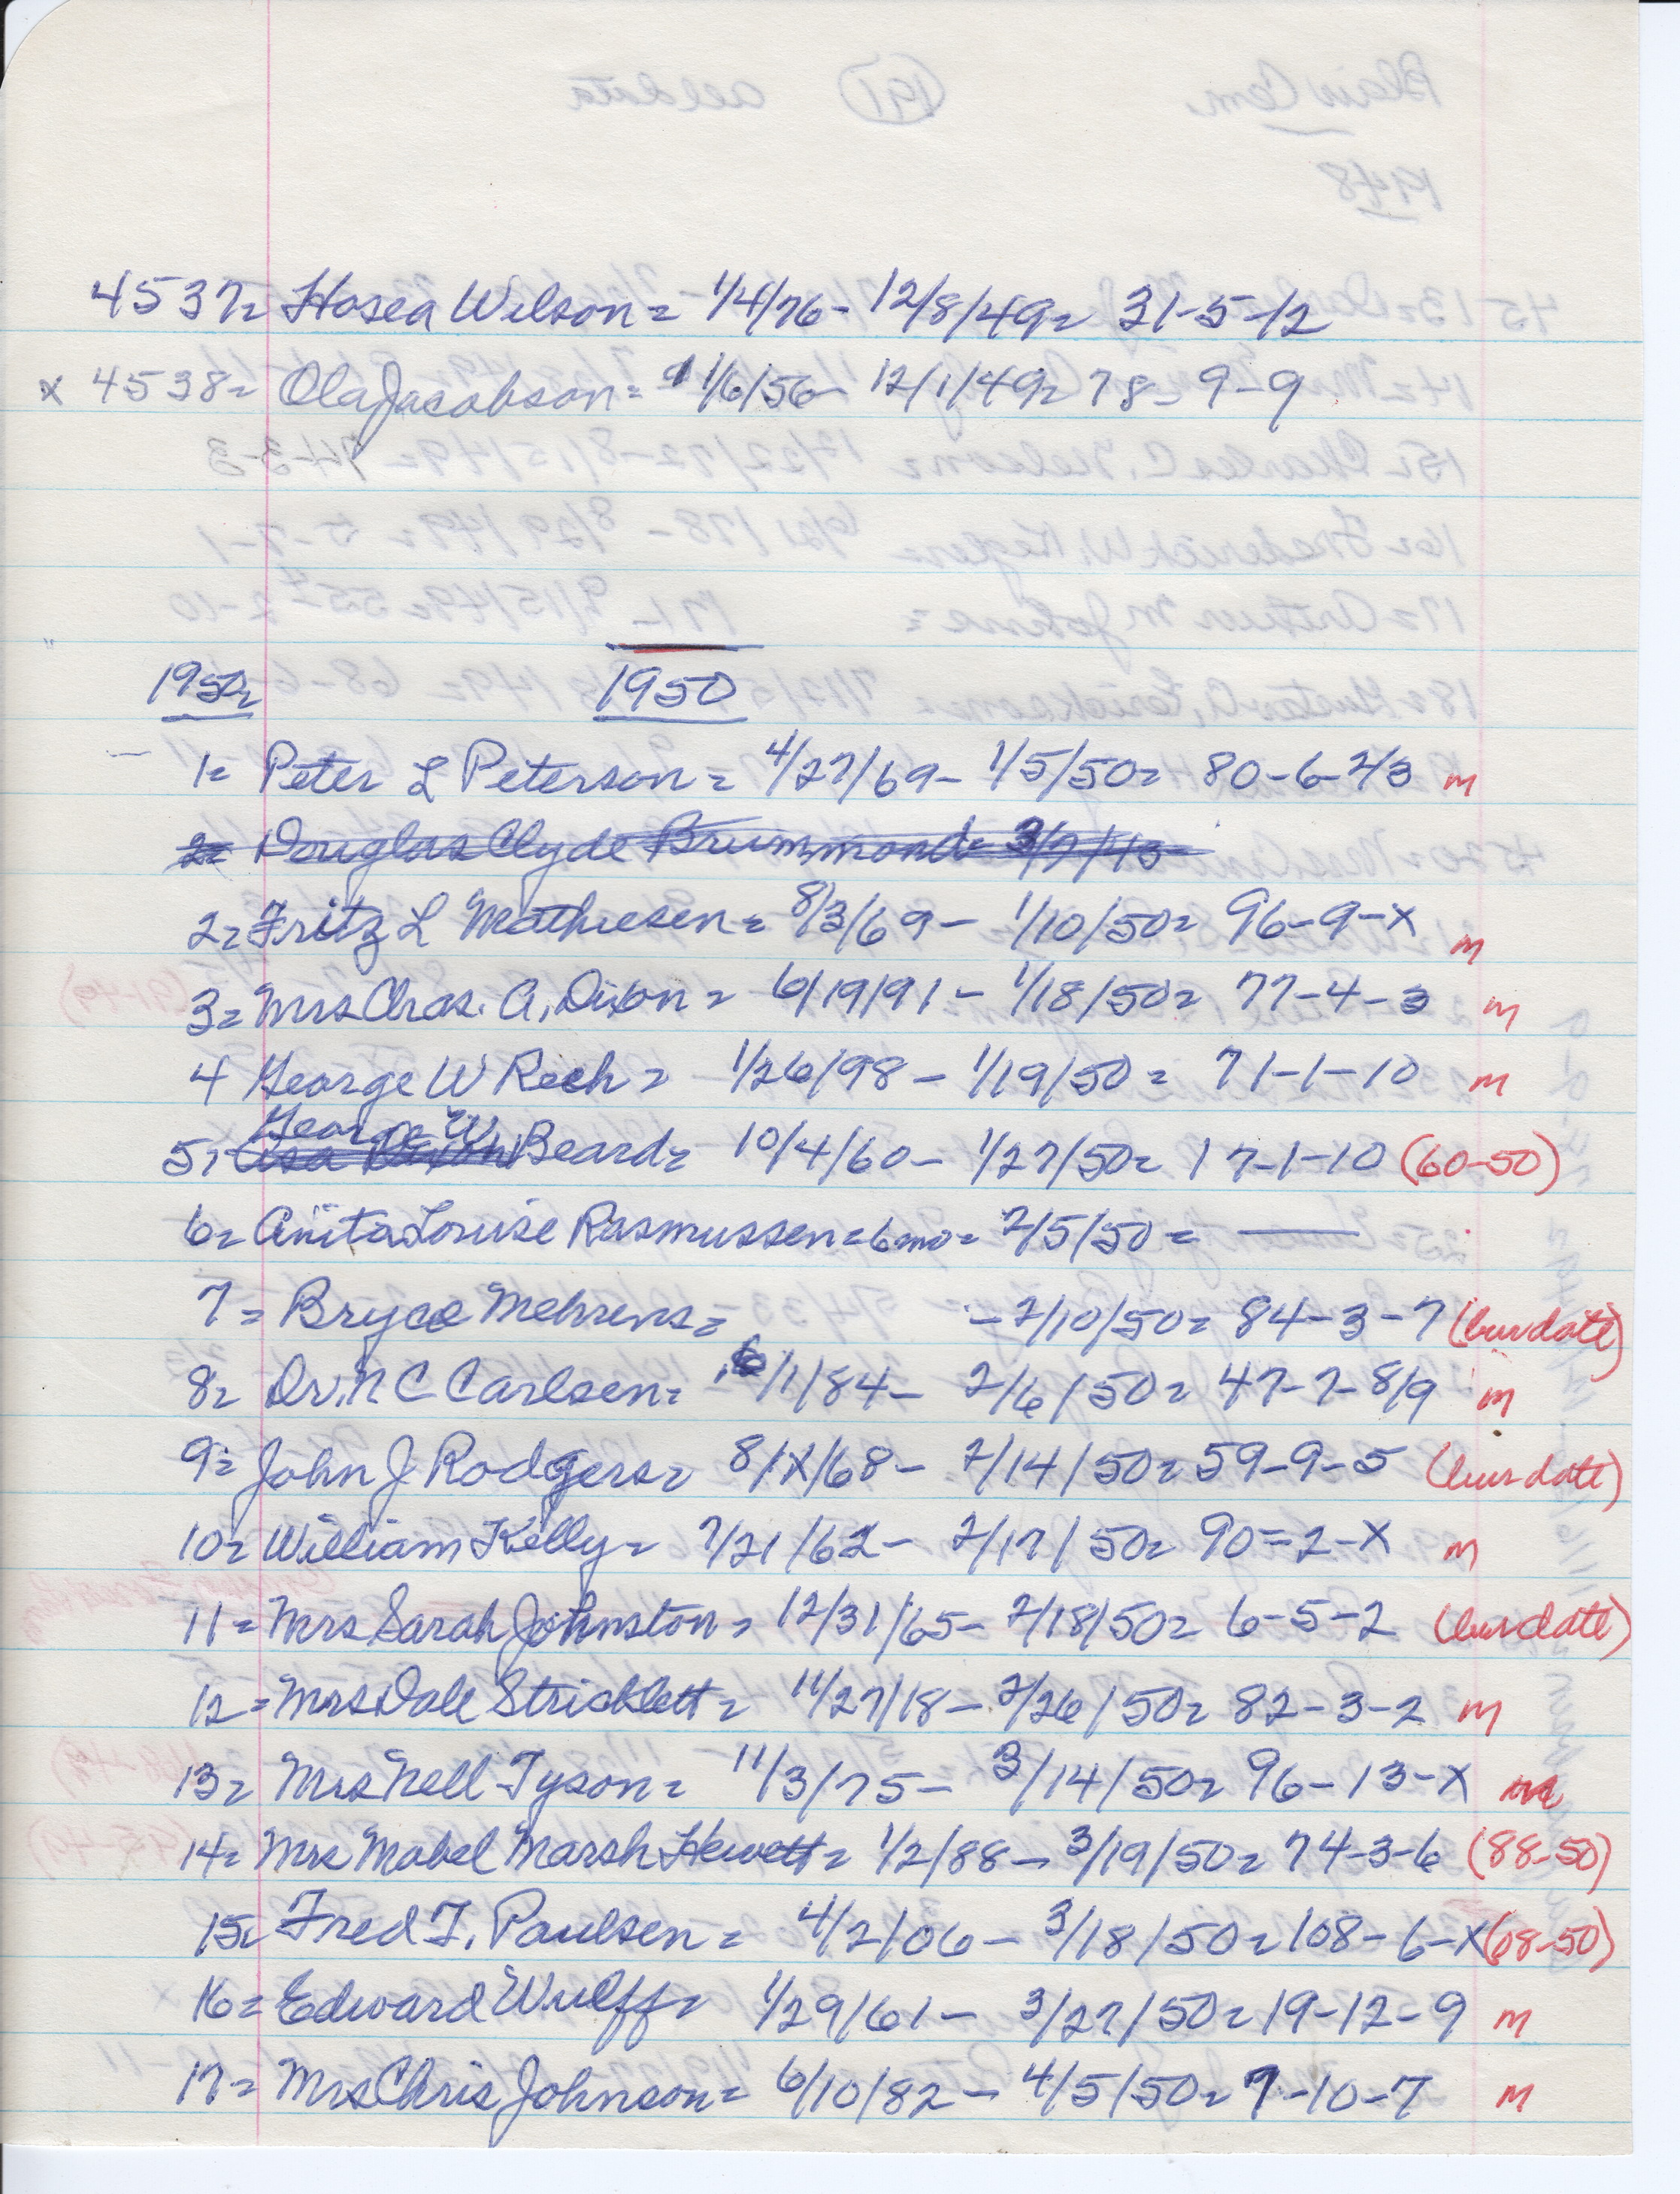 4537= Hosea Wilson= 1/4/76- 12/8/49= 31-5-12
x 4538= Ola Jacobson= 11/6/56- 12/1/49= 78-9-9
1950= 1950
1= Peter L Peterson= 4/27/69- 1/5/50= 80-6-2/3 m
2= Douglas Clyde Brummond= 3/7/13=
2= Fritz L Mathiesen= 8/3/69- 1/10/50= 96-9-X m
3= Mrs Chas. A. Dixon= 6/19/91- 1/18/50= 77-4-3 m
4 George W Rech= 1/26/98- 1/19/50= 71-1-10 m
George W
5= Asa Dixon Beard= 10/4/60- 1/27/50= 17-1-10 (60-50)
6= Anita Louise Rasmussen= 6mo= 2/5/50= —
7= Bryce Mehrens= -2/10/50= 84-3-7 (burdate)
8= Dr. N C Carlsen= 6/1/84- 2/6/50= 47-7-8/9 m
9= John J Rodgers= 8/X/68- 2/14/50= 59-9-5 (burdate)
10= William Kelly= 7/21/62- 2/17/50= 90=2-X m
11= Mrs Sarah Johnston= 12/31/65- 2/18/50= 6-5-2 (burdate)
12= Mrs Dale Stricklett= 11/27/18- 2/26/50= 82-3-2 m
13= Mrs Nell Tyson= 11/3/75- 3/14/50= 96-13-X m
14= Mrs Mabel Marsh Hewett= 1/2/88- 3/19/50= 74-3-6 (88-50)
15= Fred T. Paulsen= 4/2/06- 3/18/50= 108-6-X (08-50)
16= Edward Wulff= 1/29/61- 3/27/50= 19-12-9 m
17= Mrs Chris Johnson= 6/10/82- 4/5/50= 7-10-7 m